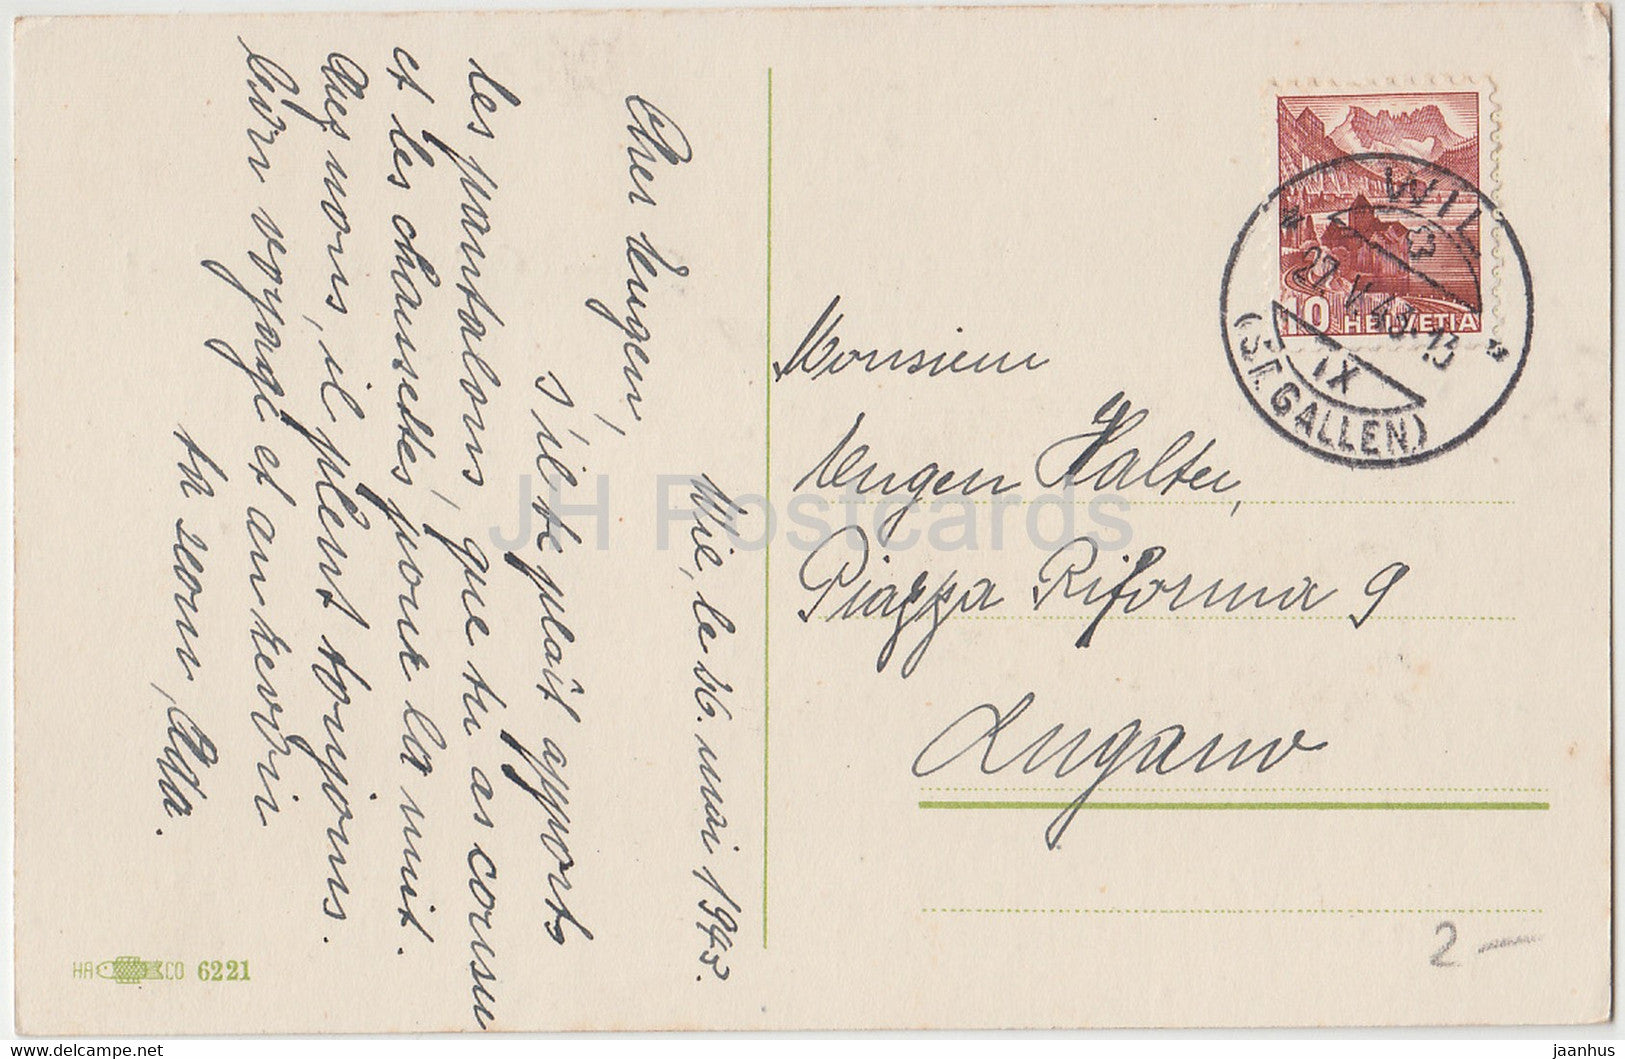 Wil, le 26. mai 1943.
Cher Eugen,
s'il te plaît apporte
les pantalons, que tu as cousu
et les chausettes pour la nuit.
chez nous, il pleut toujours.
bon voyage et au revoir
ta soeur, Ada.
Monsieur
Eugen Halter,
Piazza Riforma 9
Lugano
10 HELVETIA
WIL
27. V. 43. 13
IX
(ST. GALLEN)
HACO 6221
2 —
JH Postcards
jaanhus www.delcampe.net